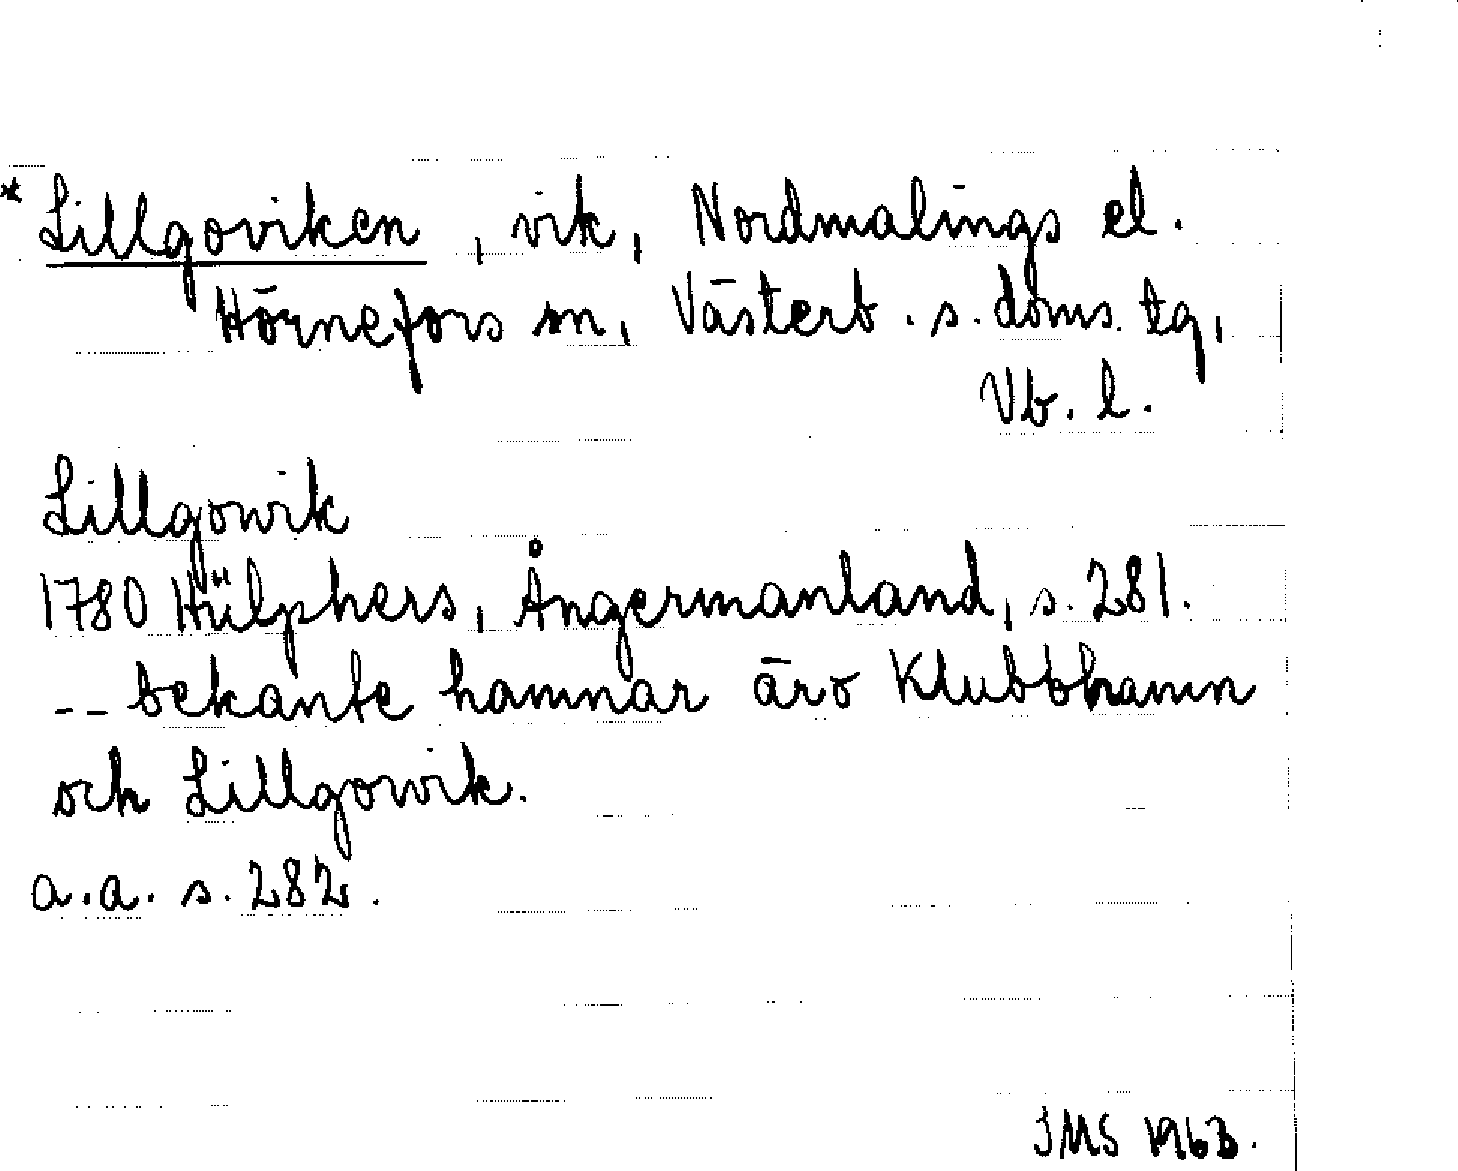 * Lillgoviken, vik, Nordmalings el.
Hörnefors sn, Västerb. s. doms. tg,
Vb. l.
Lillgowik
1780 Hülphers, Ångermanland, s. 281.
-- bekante hamnar äro Klubbhamn
och Lillgowik.
a.a. s. 282.
JMS 1963.